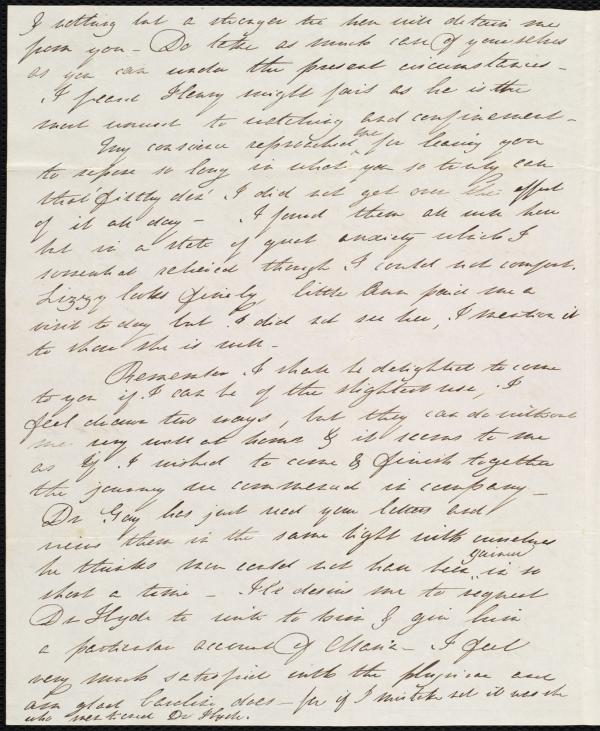 & nothing but a stronger tie here will detain me
from you – Do take as much care of yourselves
as you can under the present circumstances –
I feared Henry might fail as he is the
most unused to watching and confinement –
My conscience reproached me for leaving you
to repose so long in what you so truly call
that filthy den. I did not get over the effect
of it all day – I found them all well here
but in a state of great anxiety which I
somewhat relieved though I could not comfort.
Lizzy looks finely little Ann paid me a
visit to day but I did not see her, I mention it
to show she is well –
Remember I shall be delighted to come
to you if I can be of the slightest use, I
feel drawn two ways, but they can do without
me very well at home & it seems to me
as if I wished to come & finish together
the journey we commenced in company –
Dr Gay has just read your letters and
views them in the same light with ourselves
he thinks more could not have been gained in so
short a time – He desires me to request
Dr Hyde to write to him & give him
a particular account of Maria – I feel
very much satisfied with the physician and
am glad Caroline does – for if I mistake not it was she
who mentioned Dr Hyde.